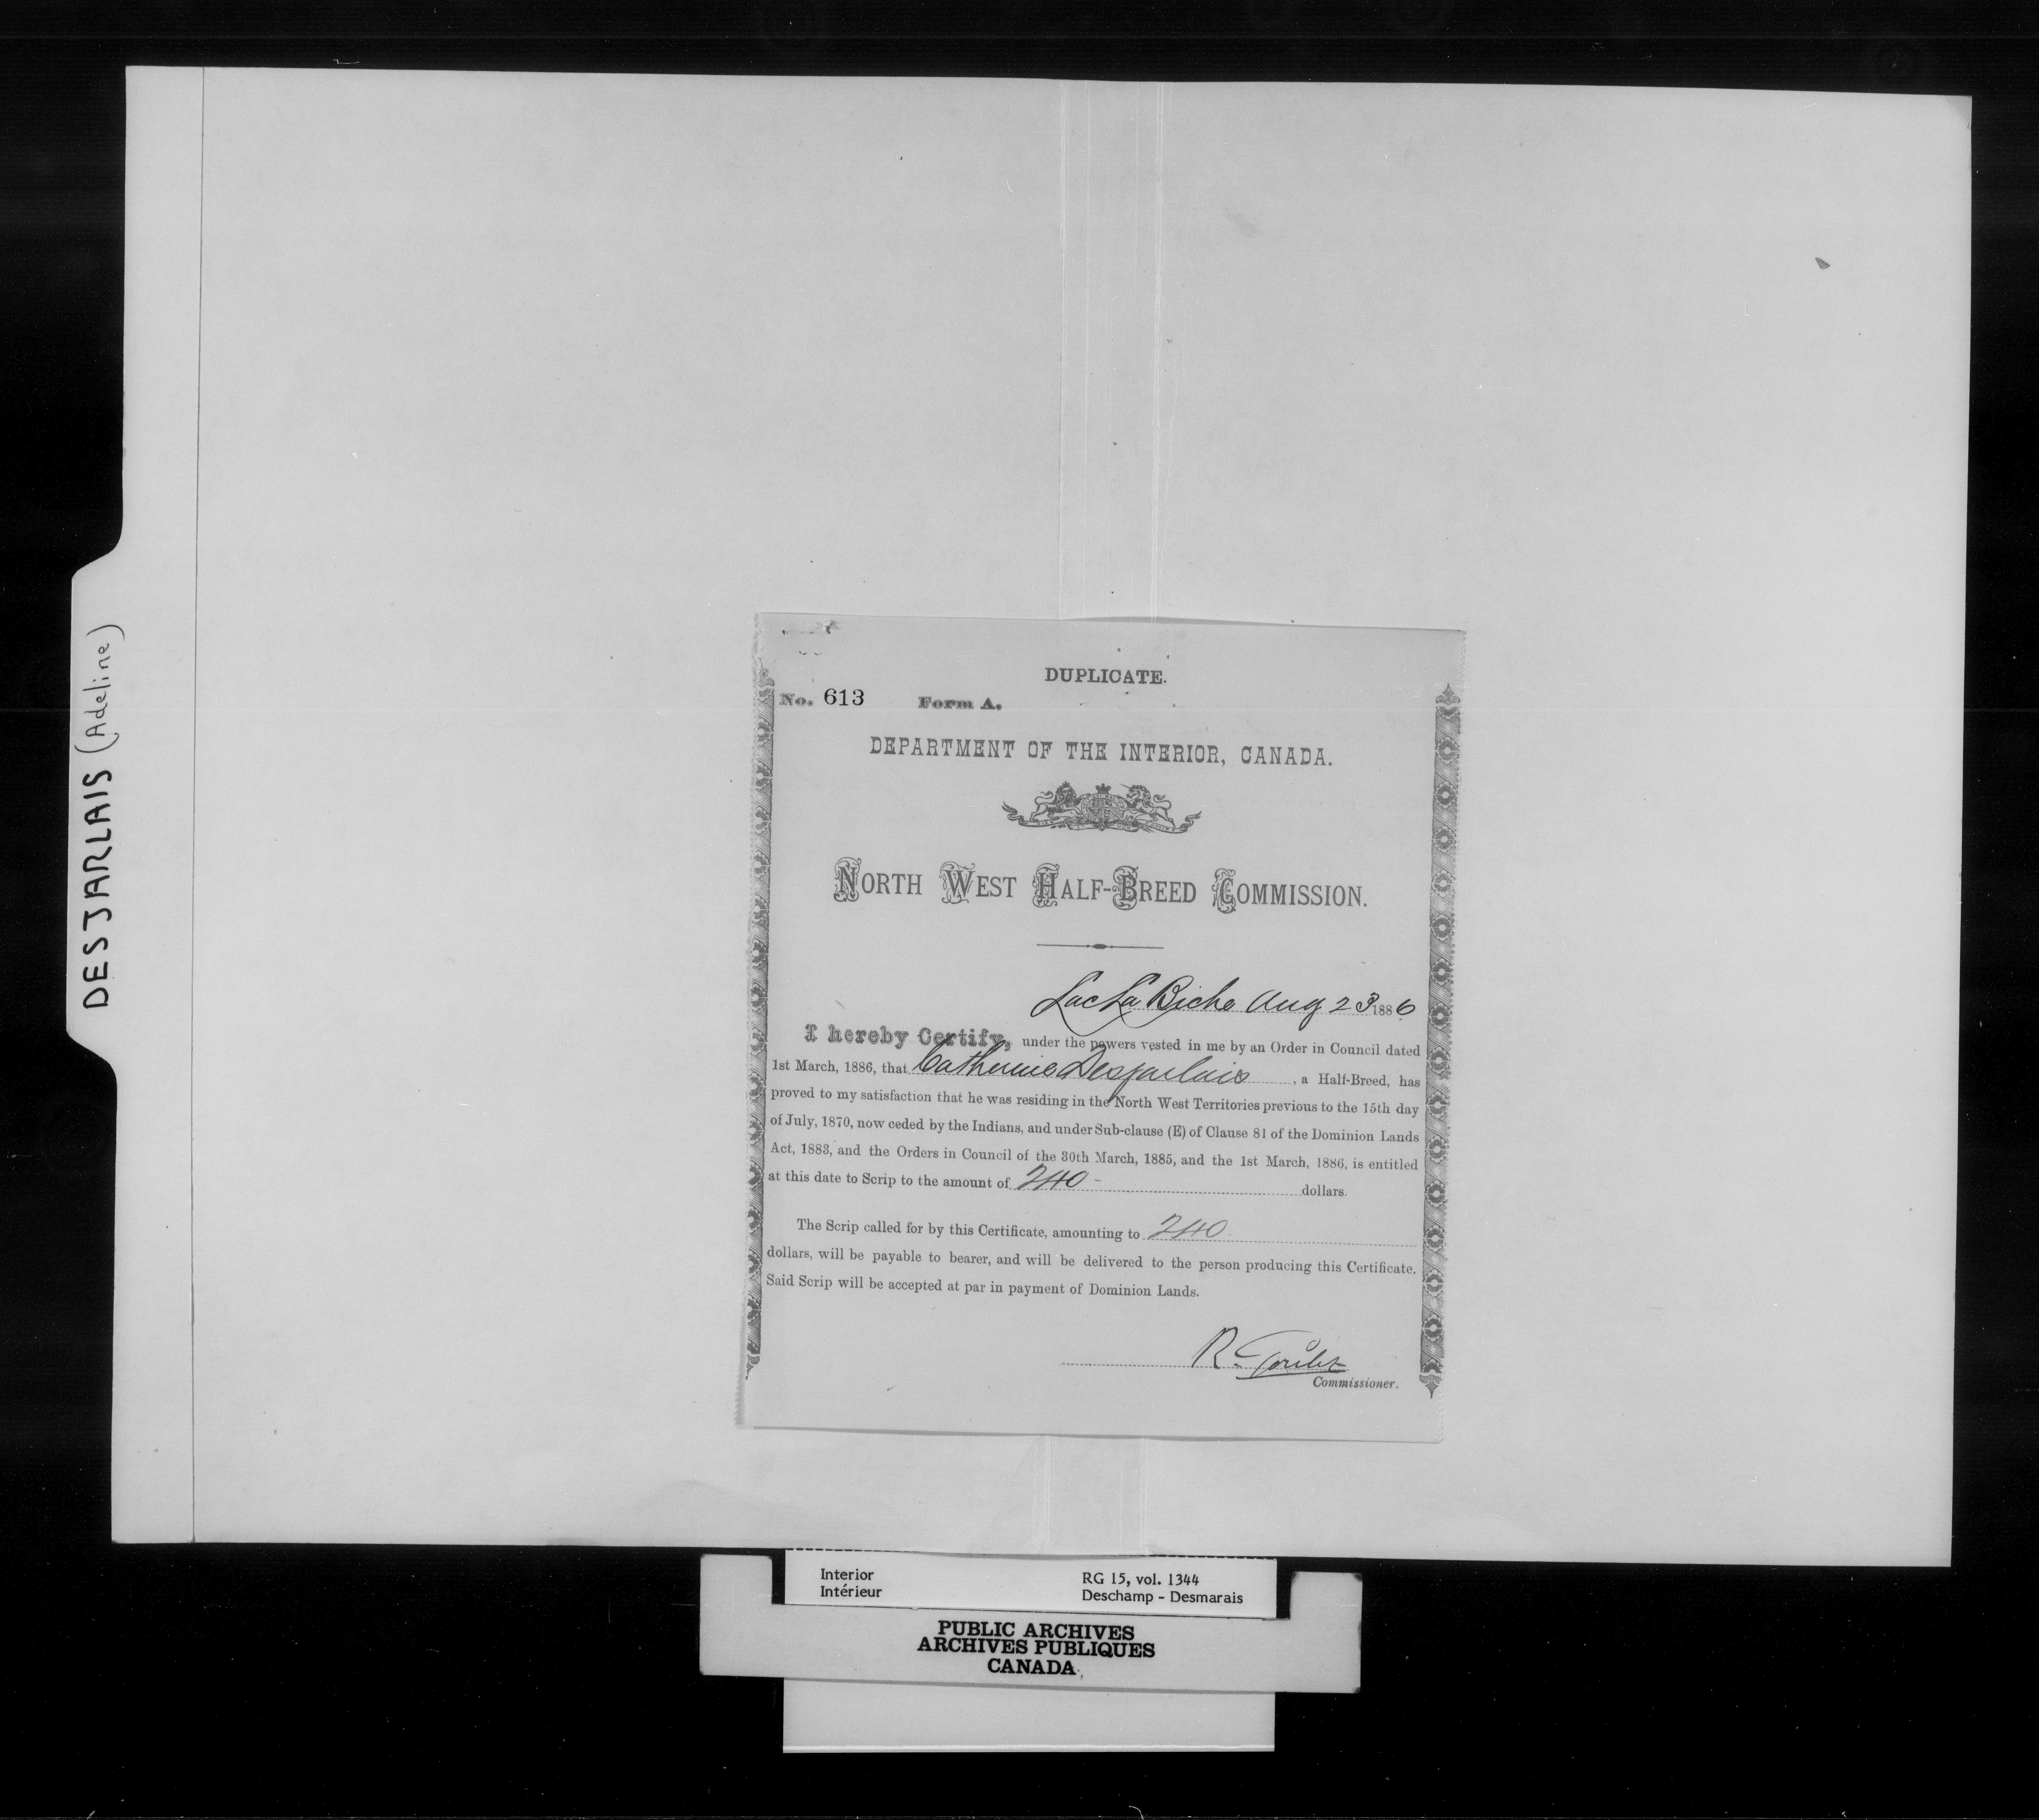 DESJARLAIS (Adeline)
DUPLICATE.
No. 613 Form A.
DEPARTMENT OF THE INTERIOR, CANADA.
NORTH WEST HALF-BREED COMMISSION.
Lac La Biche Aug 23 1886
I hereby Certify, under the powers vested in me by an Order in Council dated
1st March, 1886, that Catherine Desjarlais, a Half-Breed, has
proved to my satisfaction that he was residing in the North West Territories previous to the 15th day
of July, 1870, now ceded by the Indians, and under Sub-clause (E) of Clause 81 of the Dominion Lands
Act, 1883, and the Orders in Council of the 30th March, 1885, and the 1st March, 1886, is entitled
at this date to Scrip to the amount of 240 - dollars.
The Scrip called for by this Certificate, amounting to 240
dollars, will be payable to bearer, and will be delivered to the person producing this Certificate.
Said Scrip will be accepted at par in payment of Dominion Lands.
R. Goulet
Commissioner.
Interior RG 15, vol. 1344
Intérieur Deschamp - Desmarais
PUBLIC ARCHIVES
ARCHIVES PUBLIQUES
CANADA